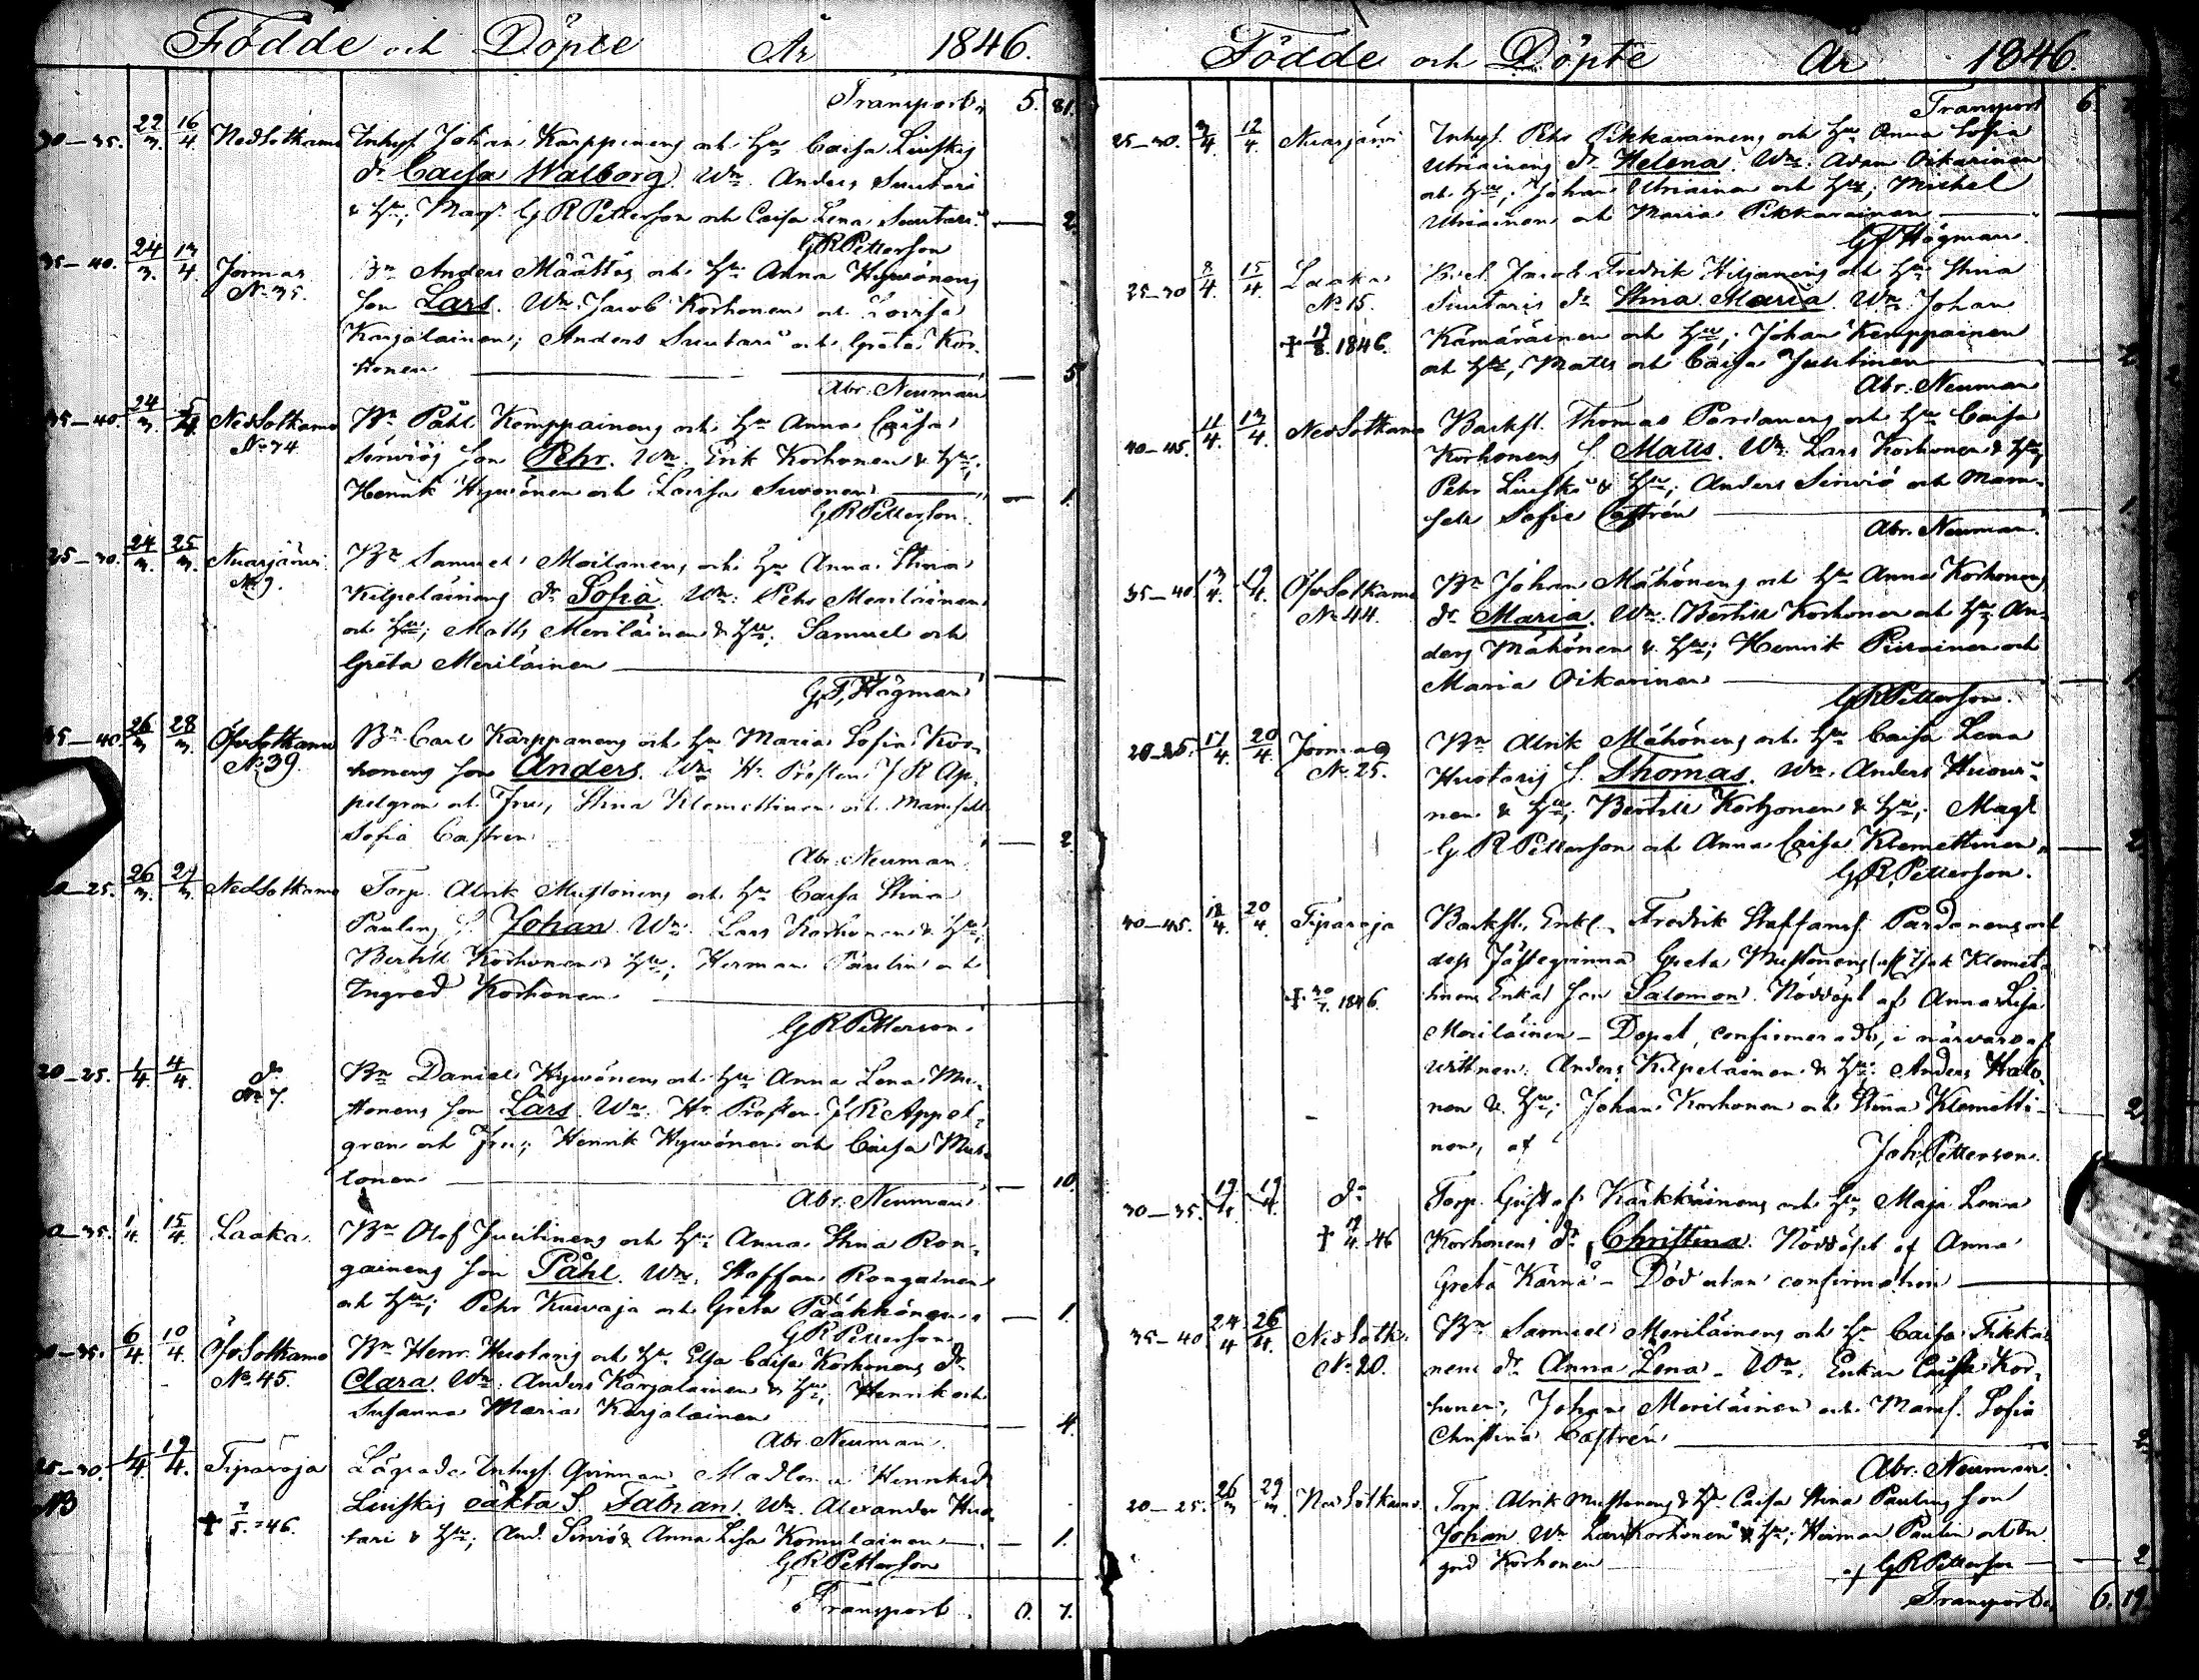 Födde och Döpte År 1846.
Transport 5. 81.
30–35. 22/3. 16/4. NedSotkamo Inhys. Johan Karppinens och Hu Caisa Liuskis
dr Caisa Walborg. Wn. Anders Suutari
& Hu; Mag. G R Petterson och Caisa Lena Suutari — 2.
G R Petterson
35–40. 24/3. 13/4. Jormas Bn Anders Määttäs och Hu Anna Hywönens
No 35. Son Lars. Wn. Jacob Korhonen och Lovisa
Karjalainen; Anders Suutari och Greta Kor-
honen — 5
Abr. Neuman
35–40. 24/3. 5/4. NedSotkamo Bn Påhl Kemppainens och Hu Anna Caisa
No 74 Serwiös Son Pehr. Wn. Erik Korhonen & Hu;
Henrik Hywönen och Lovisa Suvonen — 1.
G R Petterson.
25–30. 24/3. 25/3. Nuasjärvi Bn Samuel Moilanens och Hu Anna Stina
No 9. Kilpeläinens dr Sofia. Wn: Pehr Meriläinen
och Hu; Matts Meriläinen & Hu; Samuel och
Greta Meriläinen —
G. F. Högman
35–40 26/3 28/3. ÖfvSotkamo Bn Carl Karppanens och Hu Maria Sofia Kor-
No 39. honens Son Anders. Wn Hr Prosten J R Ap-
pelgren och Fru, Stina Klemettinen och Mamsell
Sofia Castren — 2.
Abr. Neuman
20–25. 26/3. 29/3. NedSotkamo Torp. Alrik Mustonens och Hu Caisa Stina
Paulins S. Johan. Wn: Lars Korhonen & Hu;
Bertill Korhonen & Hu; Herman Paulin och
Ingred Korhonen —
G R Petterson.
20–25. 1/4. 4/4. do Bn Daniel Hywönens och Hu Anna Lena Mu-
No 7. stonens Son Lars. Wn. Hr Prosten J R Appel-
gren och Fru; Henrik Hywönen och Caisa Mus-
tonen — 10.
Abr. Neuman
30–35. 1/4. 15/4. Laaka. Bn Olof Juutinens och Hu Anna Stina Ron-
gainens Son Påhl. Wn. Staffan Rongainen
och Hu; Pehr Kuvaja och Greta Pääkkönen — 1.
G R Petterson
30–35. 6/4. 10/4. ÖfvSotkamo Bn Henr. Huotaris och Hu Elsa Caisa Korhonens dr
No 45. Clara. Wn. Anders Karjalainen & Hu; Henrik och
Susanna Maria Karjalainen — 4.
Abr. Neuman.
25–30. 19/4. Tiparoja Lägrade Inhys. Qvinnan Madlena Henriksd
NB Liuskis oäkta S. Fabian. Wn. Alexander Huo-
† 7/5. 46. tari & Hu; And. Serwiö & Anna Lisa Komulainen — 1.
G R Petterson
Transport. 7.
Födde och Döpte År 1846.
Transport 6.
25–30. 12/4. Nuasjärvi Inhys. Pehr Pikkarainens och Hu Anna Sofia
Utriainens dr Helena. Wn. Adam Oikarinen
och Hu; Johan Utriainen och Hu; Michel
Utriainen och Maria Pikkarainen —
G F Högman.
25–30 8/4. 15/4. Laaka Jacob Fredrik Hiljanens och Hu Stina
No 15. Suutaris dr Stina Maria. Wn. Johan
† 19/8. 1846. Kämäräinen och Hu; Johan Kemppainen
och Hu, Matts och Caisa Juutinen — 2
Abr. Neuman
40–45. 11/4. 13/4. NedSotkamo Backst. Thomas Pardanens och Hu Caisa
Korhonens S. Matts. Wn. Lars Korhonen & Hu;
Pehr Liuski & Hu; Anders Serwiö och Mam-
sell Sofie Castrén — 1
Abr. Neuman.
35–40. 13/4. 19/4. ÖfvSotkamo Bn Johan Mähönens och Hu Anna Korhonens
No 44. dr Maria. Wn. Bertill Korhonen och Hu; An-
ders Mähönen & Hu; Henrik Piirainen och
Maria Oikarinen — 1
G R Petterson.
20–25. 17/4. 20/4. Jormas Bn Alrik Mähönens och Hu Caisa Lena
No 25. Huotaris S. Thomas. Wn. Anders Huovi-
nen & Hu; Bertill Korhonen & Hu; Magr
G R Petterson och Anna Caisa Klemettinen — 2
G. R. Petterson.
40–45. 18/4. 20/4. Tiparoja Backst. Enkl. Fredrik Staffanss. Pardanens och
dess Fästeqvinna Greta Mustonens (afl. Isak Klemet-
† 30/7. 1846. tinens Enka) Son Salomon. Nöddöpt af Anna Lisa
Meriläinen – Dopet confirmeradt, i närvaro af
Wittnen: Anders Kilpeläinen & Hu; Anders Halo-
nen & Hu; Johan Korhonen och Stina Klemetti- 2
nen, af Joh. Petterson.
30–35. 19/4. 19/4. do Torp. Gustaf Karkkäinens och Hu Maja Lena
† 19/4. 46 Korhonens dr Christina. Nöddöpt af Anna
Greta Kärnä – Död utan confirmation —
35–40 24/4 26/4. NedSotk. Bn Samuel Meriläinens och Hu Caisa Tikka-
No 20. nens dr Anna Lena – Wn. Enkan Caisa Kor-
honen, Johan Meriläinen och Mams. Sofia
Christina Castrén — 2
Abr. Neuman.
20–25. 26/3 29/3 NedSotkamo. Torp. Alrik Mustonens & H. Caisa Stina Paulins Son
Johan Wn Lars Korhonen & Hu; Herman Paulin och In-
gred Korhonen — af G R Petterson — 2
Transport. 6. 19